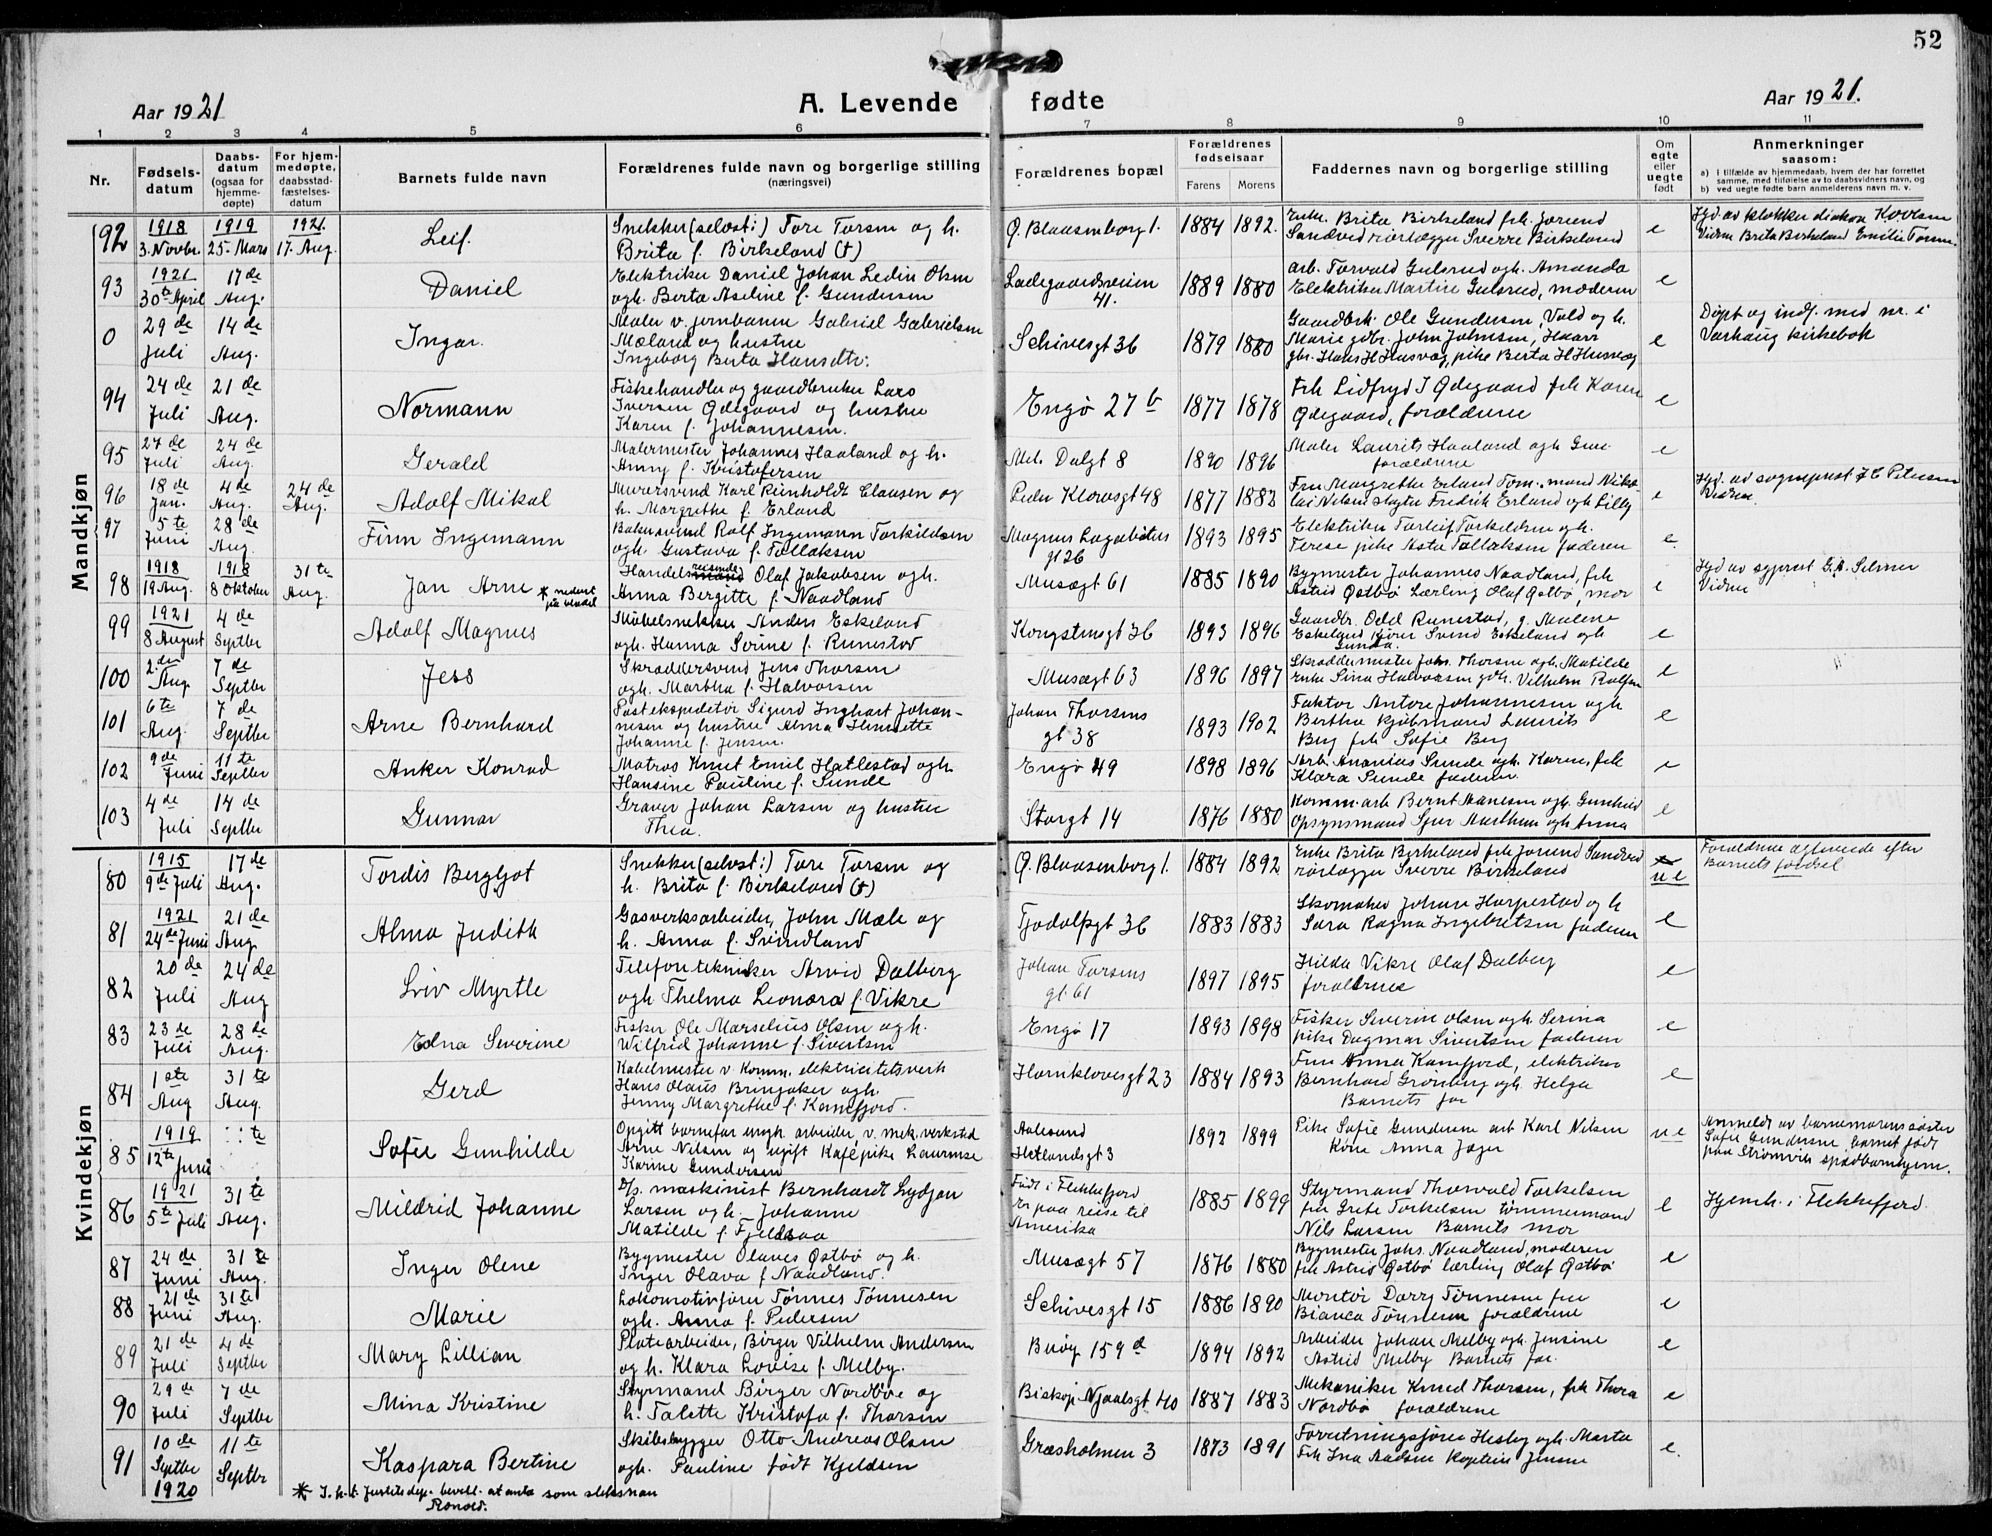 52
Aar 1921
A. Levende fødte
Aar 1921.
1 2 3 4 5 6 7 8 9 10 11
Nr.
Fødsels-
datum
Daabs-
datum
(ogsaa for
hjemme-
døpte)
For hjem-
medøpte,
daabsstad-
fæstelses-
datum
Barnets fulde navn
Forældrenes fulde navn og borgerlige stilling
(næringsvei)
Forældrenes bopæl
Forældrenes
fødselsaar
Farens Morens
Faddernes navn og borgerlige stilling
Om
egte
eller
uegte
født
Anmerkninger
saasom:
a) i tilfælde av hjemmedaab, hvem der har forrettet
samme, med tilføielse av to daabsvidners navn, og
b) ved uegte fødte barn anmelderens navn m. v.
Mandkjøn
92 1918 3. Novbr. 1919 25. Mars 1921 17. Aug. Leif.
Snekker (selvst:) Tore Torsen og h.
Brita f. Birkeland (†)
Ø. Blaasenborg 1. 1884 1892.
Enke Brita Birkeland frk. Jorund
Sandved rørlægger Sverre Birkeland
e
Hjd. av klokker diakon
Vidne Brita Birkeland Emilie
93 1921 30te April 17 de Aug. Daniel
Elektriker Daniel Johan Ledin Olsen
ogh. Berta Aseline f. Gundersen
Ladegaardsveien
41.
1889 1880
arb. Torvald Gulsrud ogh. Amanda
Elektriker Martin Gulsrud, moderen
e
0 29 de Juli 14 de Aug. Ingar.
Maler v. jernbanen Gabriel Gabrielsen
Mæland og hustru
Ingeborg Berta Hansdtr.
Schivesgt 36 1879 1880
Gaardbrk. Ole Gundersen, Vold og h.
Marie gdbr. John Johnsen, Haarr
gbr. Hans H Husvæg, pike Berta H Husvæg
e
Døpt og indf. med nr. i
Varhaug kirkebok
94 24 de Juli 21 de Aug. Normann
Fiskehandler og gaardbruker Lars
Iversen Ødegaard og hustru
Karen f. Johannesen.
Engø 27 b 1877 1878
frk Lidfryd I Ødegaard frk Karen
Ødegaard, forældrene
e
95 27 de Juli 24 de Aug. Gerald
Malermester Johannes Haaland og h.
Anny f. Kristofersen
Mel. Dalgt 8 1890 1896
Maler Laurits Haaland ogh
forældrene
e
96 18 de Jan. 4 de Aug. 24 de Aug. Adolf Mikal
Murersvend Karl Reinholdt Clausen og
h. Margrethe f. Erland
Peder Klowsgt 48 1877 1882
Fru Margrethe Erland Tom. mand
Nilsen Fredrik Erland ogh Lilly
e
Hjd. av sogneprest Petersen
Vidne
97 5 te Juni 28 de Aug. Finn Ingemann
Bakersvend Rolf Ingemann Torkildsen
ogh. Gustava f. Tollaksen
Magnus Lagabøters
gt 26
1893 1895
Elektriker Torleif Torkildsen ogh.
Terese pike Asta Tollaksen faderen
e.
98 1918 19 Aug. 1918 8 Oktober 31 te Aug. Jan Arne * nederst
paa bladet
Handelsreisende Olaf Jakobsen ogh.
Anna Bergitte f. Naadland
Musægt 61 1885 1890
Bygmester Johannes Naadland, frk
Astrid Østbø Lærling Olaf Østbø, mor
e
Hjd av sgprest G. A. Selmer
Vidne
99 1921 8 August 4 de Septbr Adolf Magnus
Møbelsnekker Anders Eskeland
ogh. Hanna Serine f. Runestad
Kongstensgt 36 1893 1896
Gaardbr. Odd Runestad, g. Malene
Eskeland Svend Eskeland ogh
Gunda.
e
100 2 den Aug. 7 de Septbr Jess
Skræddersvend Jens Thorsen
ogh. Martha f. Halvorsen
Musægt 63 1896 1897
Skræddermester Johs. Thorsen ogh. Matilde
Enke Sina Halvorsen gdh. Vilhelm
e
101 6 te Aug. 7 de Septbr Arne Bernhard
Postekspeditør Sigurd Inghart Johan-
nesen og hustru Alma Henriette
Johanne f. Jensen.
Johan Thorsens
gt 38
1893 1902
Faktor Antore Johannesen ogh
Bertha kjøbmand Laurits
Berg frk Sofie Berg
e
102 9 de Juni 11 te Septbr Anker Konrad
Matros Knut Emil Hatlestad ogh.
Hansine Pauline f. Sunde
Engø 49 1898 1896
Arb. Ananias Sunde ogh. Karen, frk
Klara Sunde faderen
e
103 4 de Juli 14 de Septbr Gunnar
Graver Johan Larsen og hustru
Thea.
Storgt 14 1876 1880
Komm. arb Bernt Hanesen ogh Gunhild
Opsynsmand Sjur Aarthun ogh Anna
e
Kvindekjøn
80 1915 9 de Juli 17 de Aug. Tordis Bergljot
Snekker (selvst:) Tore Torsen og
h. Brita f. Birkeland (†)
Ø. Blaasenborg 1. 1884 1892
Enke Brita Birkeland frk Jorund Sandved
rørlægger Sverre Birkeland
ue
Forældrene egteviede efter
Barnets fødsel
81 1921 24 de Juni 21 de Aug Alma Judith
Gasverksarbeider, John Mæle og
h. Anna f. Svindland
Tjodolfsgt 36 1883 1883
Skomaker Johan Harpestad og h
Sara Ragna Ingebretsen faderen
e
82 20 de Juli 24 de Aug Liv Myrtle
Telefontekniker Arvid Dalberg
ogh Thelma Leonora f. Vikre
Johan Torsens
gt. 61
1897 1895
Hilda Vikre Olaf Dalberg
forældrene
e
83 23 de Juli 28 de Aug. Edna Severine
Fisker Ole Marselius Olsen ogh.
Wilfrid Johanne f. Sivertsen
Engø 17 1893 1898
Fisker Severin Olsen ogh Serina
pike Dagmar Sivertsen faderen
e
84 1 ste Aug 31 te Aug. Gerd
Kabelmester v. Komm. elektricitetsverk
Hans Olaus Bringaker ogh.
Jenny Margrethe f. Kamfjord.
Hornklovesgt 23 1884 1893
Fru Anna Kamfjord, elektriker
Bernhard Grønberg ogh. Helga
Barnets far
e
85 1919 12te Juni te Sofie Gunhilde
Opgitt barnefar ungk. arbeider, v. mek. verksted
Arne Nilsen og ugift Kafépike Laurense
Karine Gundersen
Aalesund
Hetlandsgt 3
1892 1899
Pike Sofie Gundersen arb Karl Nilsen
Kone Anna Jæger
ue
Anmeldt av barnemorens søster
Sofie Gundersen barnet født
paa Strømvik spædbarnhjem.
86 1921 5 te Juli 31 te Aug. Mildrid Johanne
D/s. maskinist Bernhardt Lydjan
Larsen ogh. Johanne
Matilde f. Fjeldsaa
Født i Flekkefjord
Er paa reise til
Amerika
1885 1899
Styrmand Thorvald Torkelsen
fru Grete Torkelsen tømmermand
Nils Larsen Barnets mor
e
Hjemh. i Flekkefjord.
87 24 de Juni 31 te Aug. Inger Olene
Bygmester Olaves Østbø og h.
Inger Olava f Naadland.
Musægt 57 1876 1880
Bygmester Johs. Naadland, moderen
frk Astrid Østbø lærling Olaf Østbø
e
88 21 de Juni 31 te Aug. Marie
Lokomotivfører Tønnes Tønnesen
ogh. Anna f. Pedersen
Schivesgt 15 1886 1890
Montør Dorry Tønnesen fru
Bianca Tønnesen forældrene
e
89 21 de Juli 4 de Septbr Mary Lillian
Platearbeider, Birger Vilhelm Andersen
og h. Klara Lovise f. Melby.
Buøy 159 d 1894 1892
Arbeider Johan Melby ogh. Jensine
Astrid Melby Barnets far.
e
90 29 de Juli 7 de Septbr Mina Kristine
Styrmand Birger Nordbøe og
h. Talette Kristofa f. Thorsen
Biskop Njaalsgt 40 1887 1883
Mekaniker Knud Thorsen, frk Thora
Nordbø forældrene
e
91 10 de Septbr 1920 11 te Septbr Kaspara Bertine
Skibsbygger Otto Andreas Olsen
ogh. Pauline født Kjeldsen
Græsholmen 3 1873 1891
Forretningsfører Hesby ogh. Marta
Frk Ina Aadsen kaptein Jensen
e.
* I. h. t. Justitsdep. bevill. at anta som slektsnavn
Ronold.